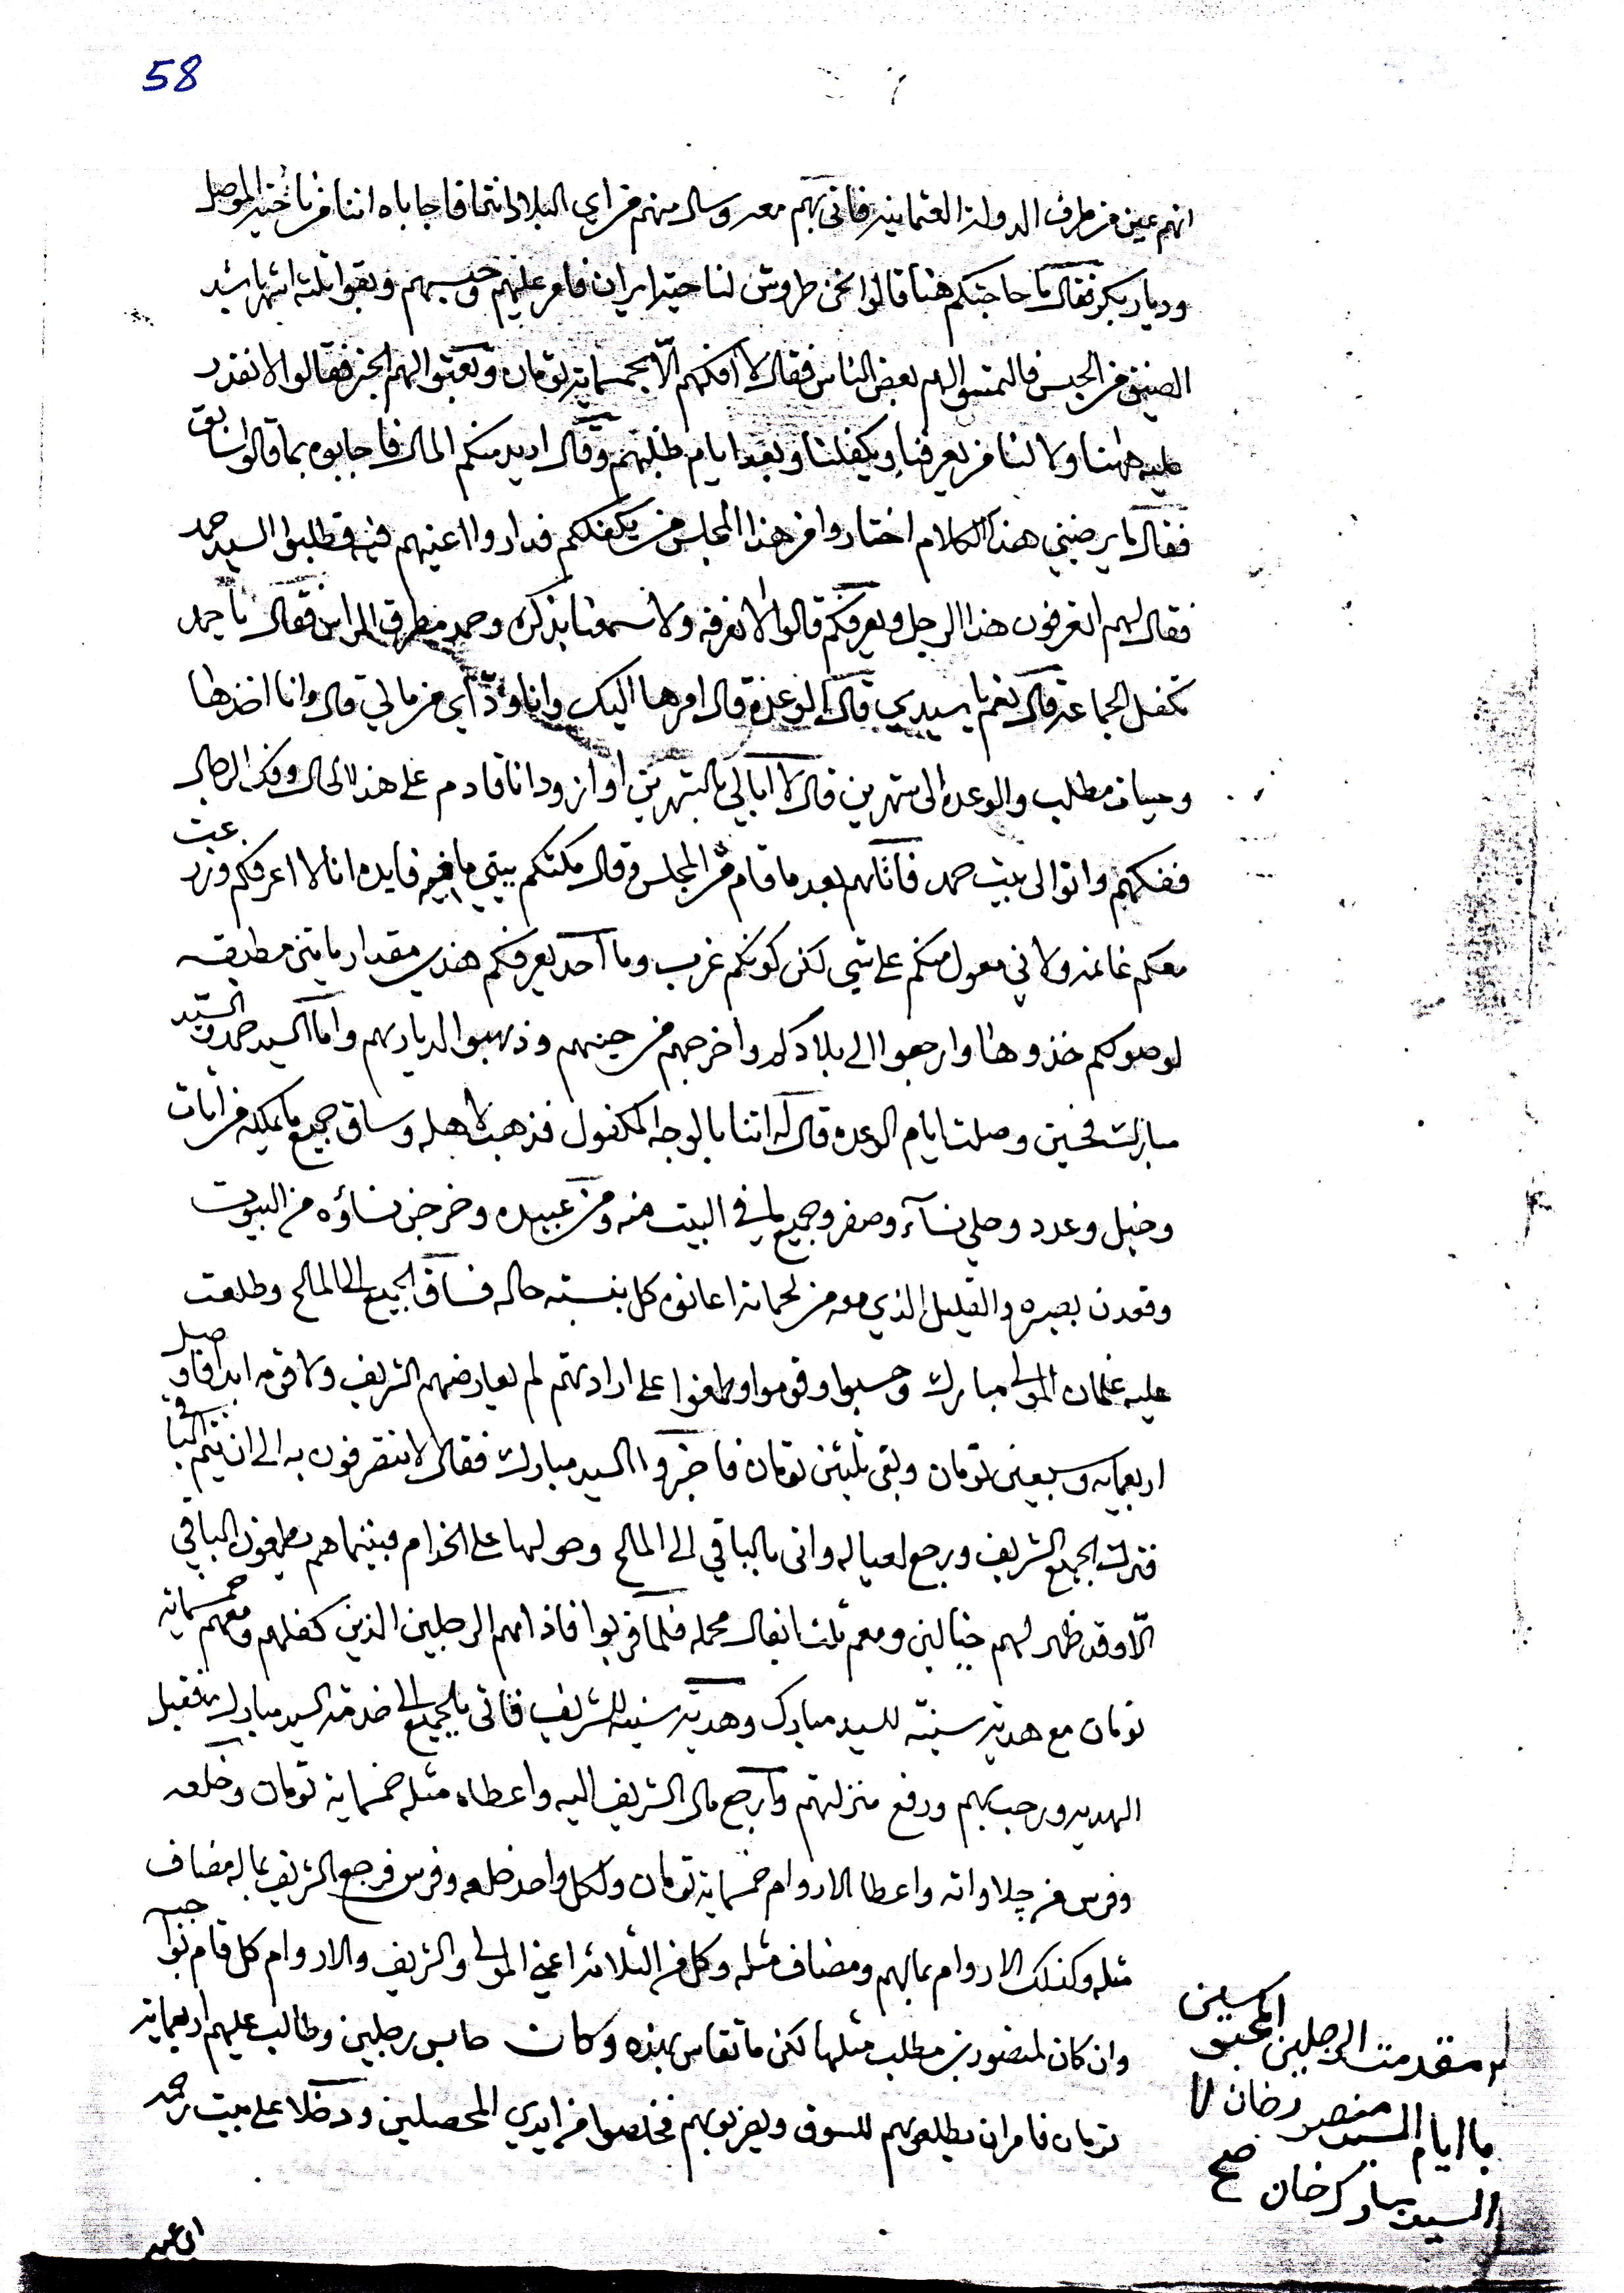 58
انهم عين من طرف الدولة العثمانية فاتى بهم معه وسال منهم من اي البلاد انتما فاجاباه اننا من ناحية الموصل
وديار بكر فقال ما حاجتكم هنا قالوا نحن طروش لنا حية ايران فامر عليهم وحبسهم وبقوا ثلثة اشهر باشد
الضيق من الحبس فالتمسوا لهم بعض الناس فقال لا افكهم الّا بخمسماية تومان وبعثوا لهم الخبر فقالوا لا نقدر
عليه هاهنا ولا لنا من يعرفنا ويكفلنا وبعد ايام طلبهم وقال اريد منكم المال فاجابوه بما قالوا سابق
فقال ما يرضيني هذا الكلام اختاروا من هذا المجلس من يكفلكم فداروا اعينهم فيه فطلبوا السيد حمد
فقال لهم اتعرفون هذا الرجل ويعرفكم قالوا لا نعرفه ولا سمعنا بذكره وحمد مطرق الراس فقال يا حمد
تكفل الجماعة قال نعم يا سيدي قال الوعدة قال امرها اليك وانا اودّي من مالي قال وانا اخذها
وحياة مطلب والوعده الى شهرين قال لا ابالي بالشهرين او ازود انا قادم على هذا الحال وفك الرجال
ففكهم واتوا الى بيت حمد فاتاهم بعد ما قام من المجلس وقال مكثكم بيتي ما فيه فايده انا لا اعرفكم وزرعت
معكم غانمه ولا ني معول منكم على شي لكن كونكم غرب وما احد يعرفكم هذي مقدار مايتين مطبقه
لوصولكم خذوها وارجعوا الى بلادكم واخرجهم من حينهم وذهبوا لديارهم واما السيد حمد والسيد
مبارك فحين وصلت ايام الوعده قال له اتنا بالوجه المكفول فذهب لاهله وساق جميع ما يملكه من ابات
وخيل وعدد وحلي نساء وصفر وجميع ما في البيت منه ومن عبيده وخرجن نساؤه من البيوت
وقعدن بصيره والقليل الذي معه من لحمانه اعانوه كل بنسبة حاله فساق الجميع الى المالح وطلعت
عليه غلمان المولى مبارك وحسبوا وقوموا وطمغوا على ارادتهم لم يعارضهم الشريف ولا قومه ابدا فاوصل
اربعمايه وسبعين تومان وبقى ثلثين تومان فاخبروا السيد مبارك فقال لا تتصرفون به الى ان يتم الباقي
فترك الجميع الشريف ورجع لعياله واتى بالباقي الى المالح وحولها على الخدام فبينما هم يطمغون الباقي
الّا وقد ظهر لهم خيالين ومعهم ثلث ابغال محمله فلما قربوا فاذا هم الرجلين الذين كفلهم ومعهم خمسماية
تومان مع هدية سنية للسيد مبارك وهدية سنيه للشريف فاتى بالجميع الى خدمة السيد مبارك فقبل
الهديه ورحب بهم ورفع منزلتهم وارجع مال الشريف اليه واعطاه مثله خمسماية تومان وخلعه
وفرس من چلاواته واعطا الاروام خمسماية تومان ولكل واحد خلعه وفرس فرجع الشريف بماله مضاف
مثله وكذلك الاروام بمالهم ومضاف مثله وكل من الثلاثه اعني المولى والشريف والاروام كل قام بواجبه
وان كان لمنصور بن مطلب مثلها لكن ما تقاس بهذه وكان حابس رجلين وطالب عليهم اربعماية
تومان فامر ان يطلعوهم للسوق ويضربوهم فخلصوا من ايدي المحصلين ودخلا على بيت رحمه
مقدمت الرجلين المحبوسين
باايام السيد منصور خان لا
السيد مبارك خان صح